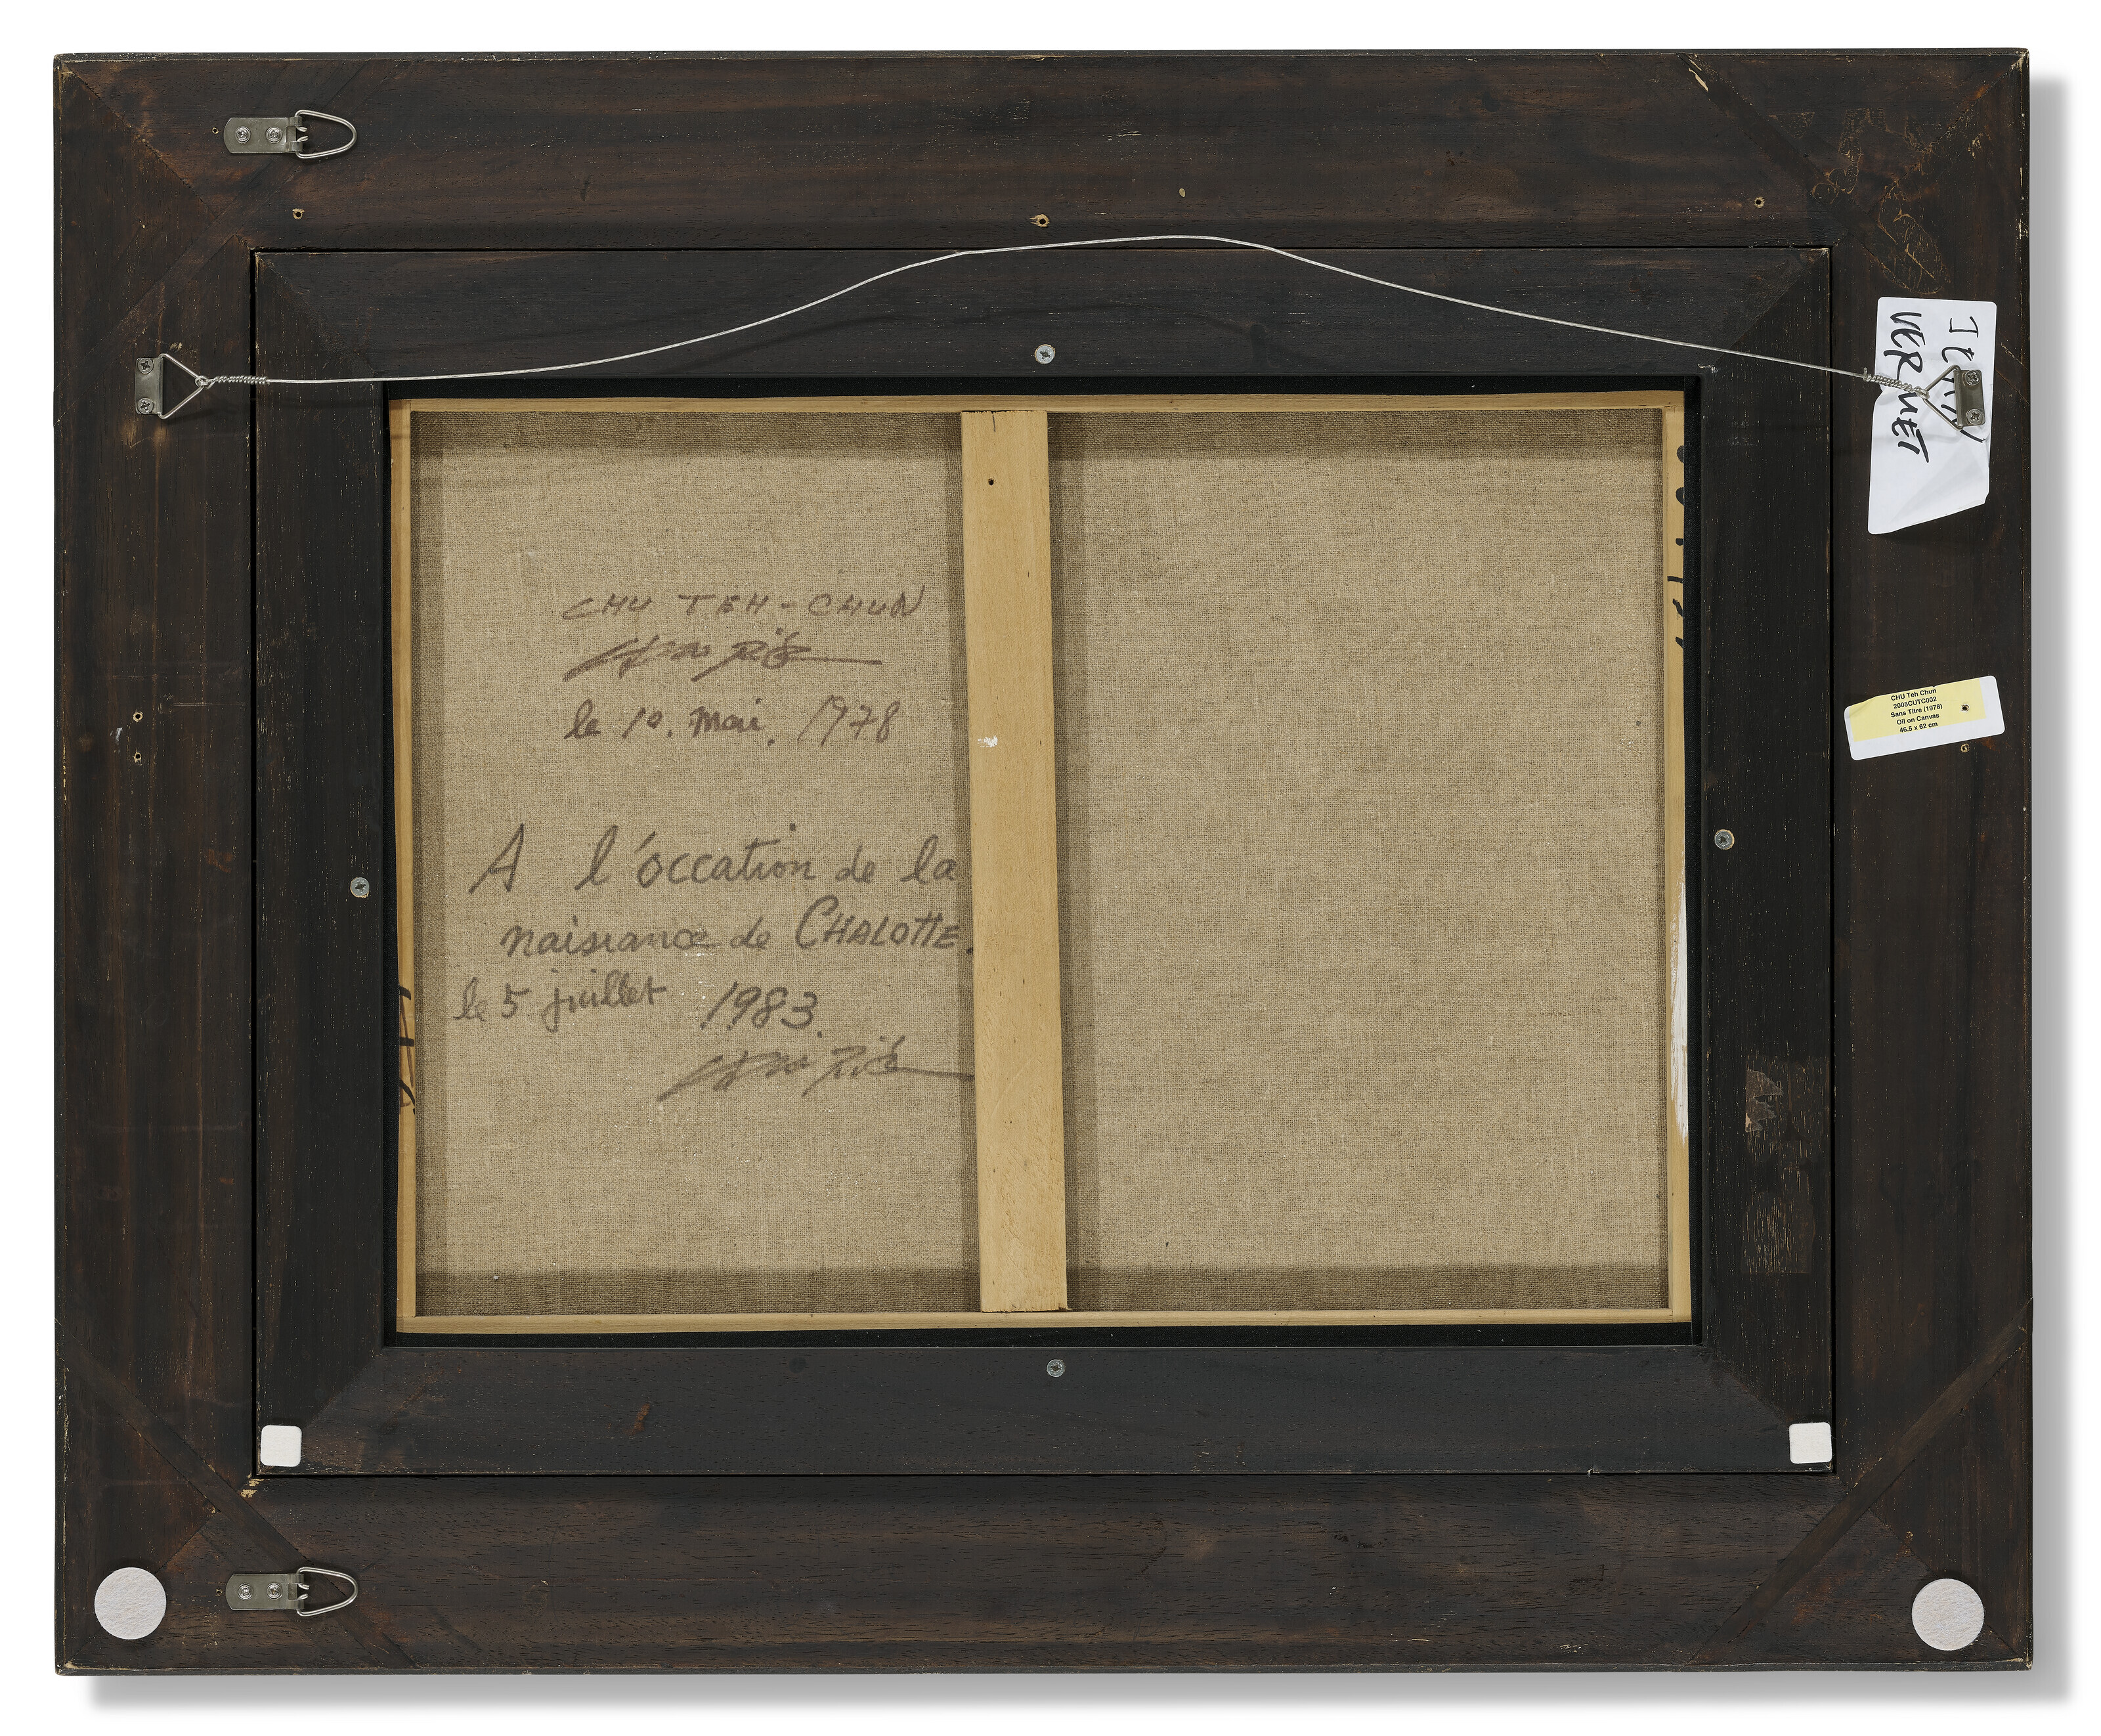 CHU TEH-CHUN
le 10. mai. 1978
A l'occation de la
naissance de CHALOTTE.
le 5 juillet 1983.
VERNET
CHU Teh Chun
2005CUTC002
Sans Titre (1978)
Oil on Canvas
46.5 x 62 cm